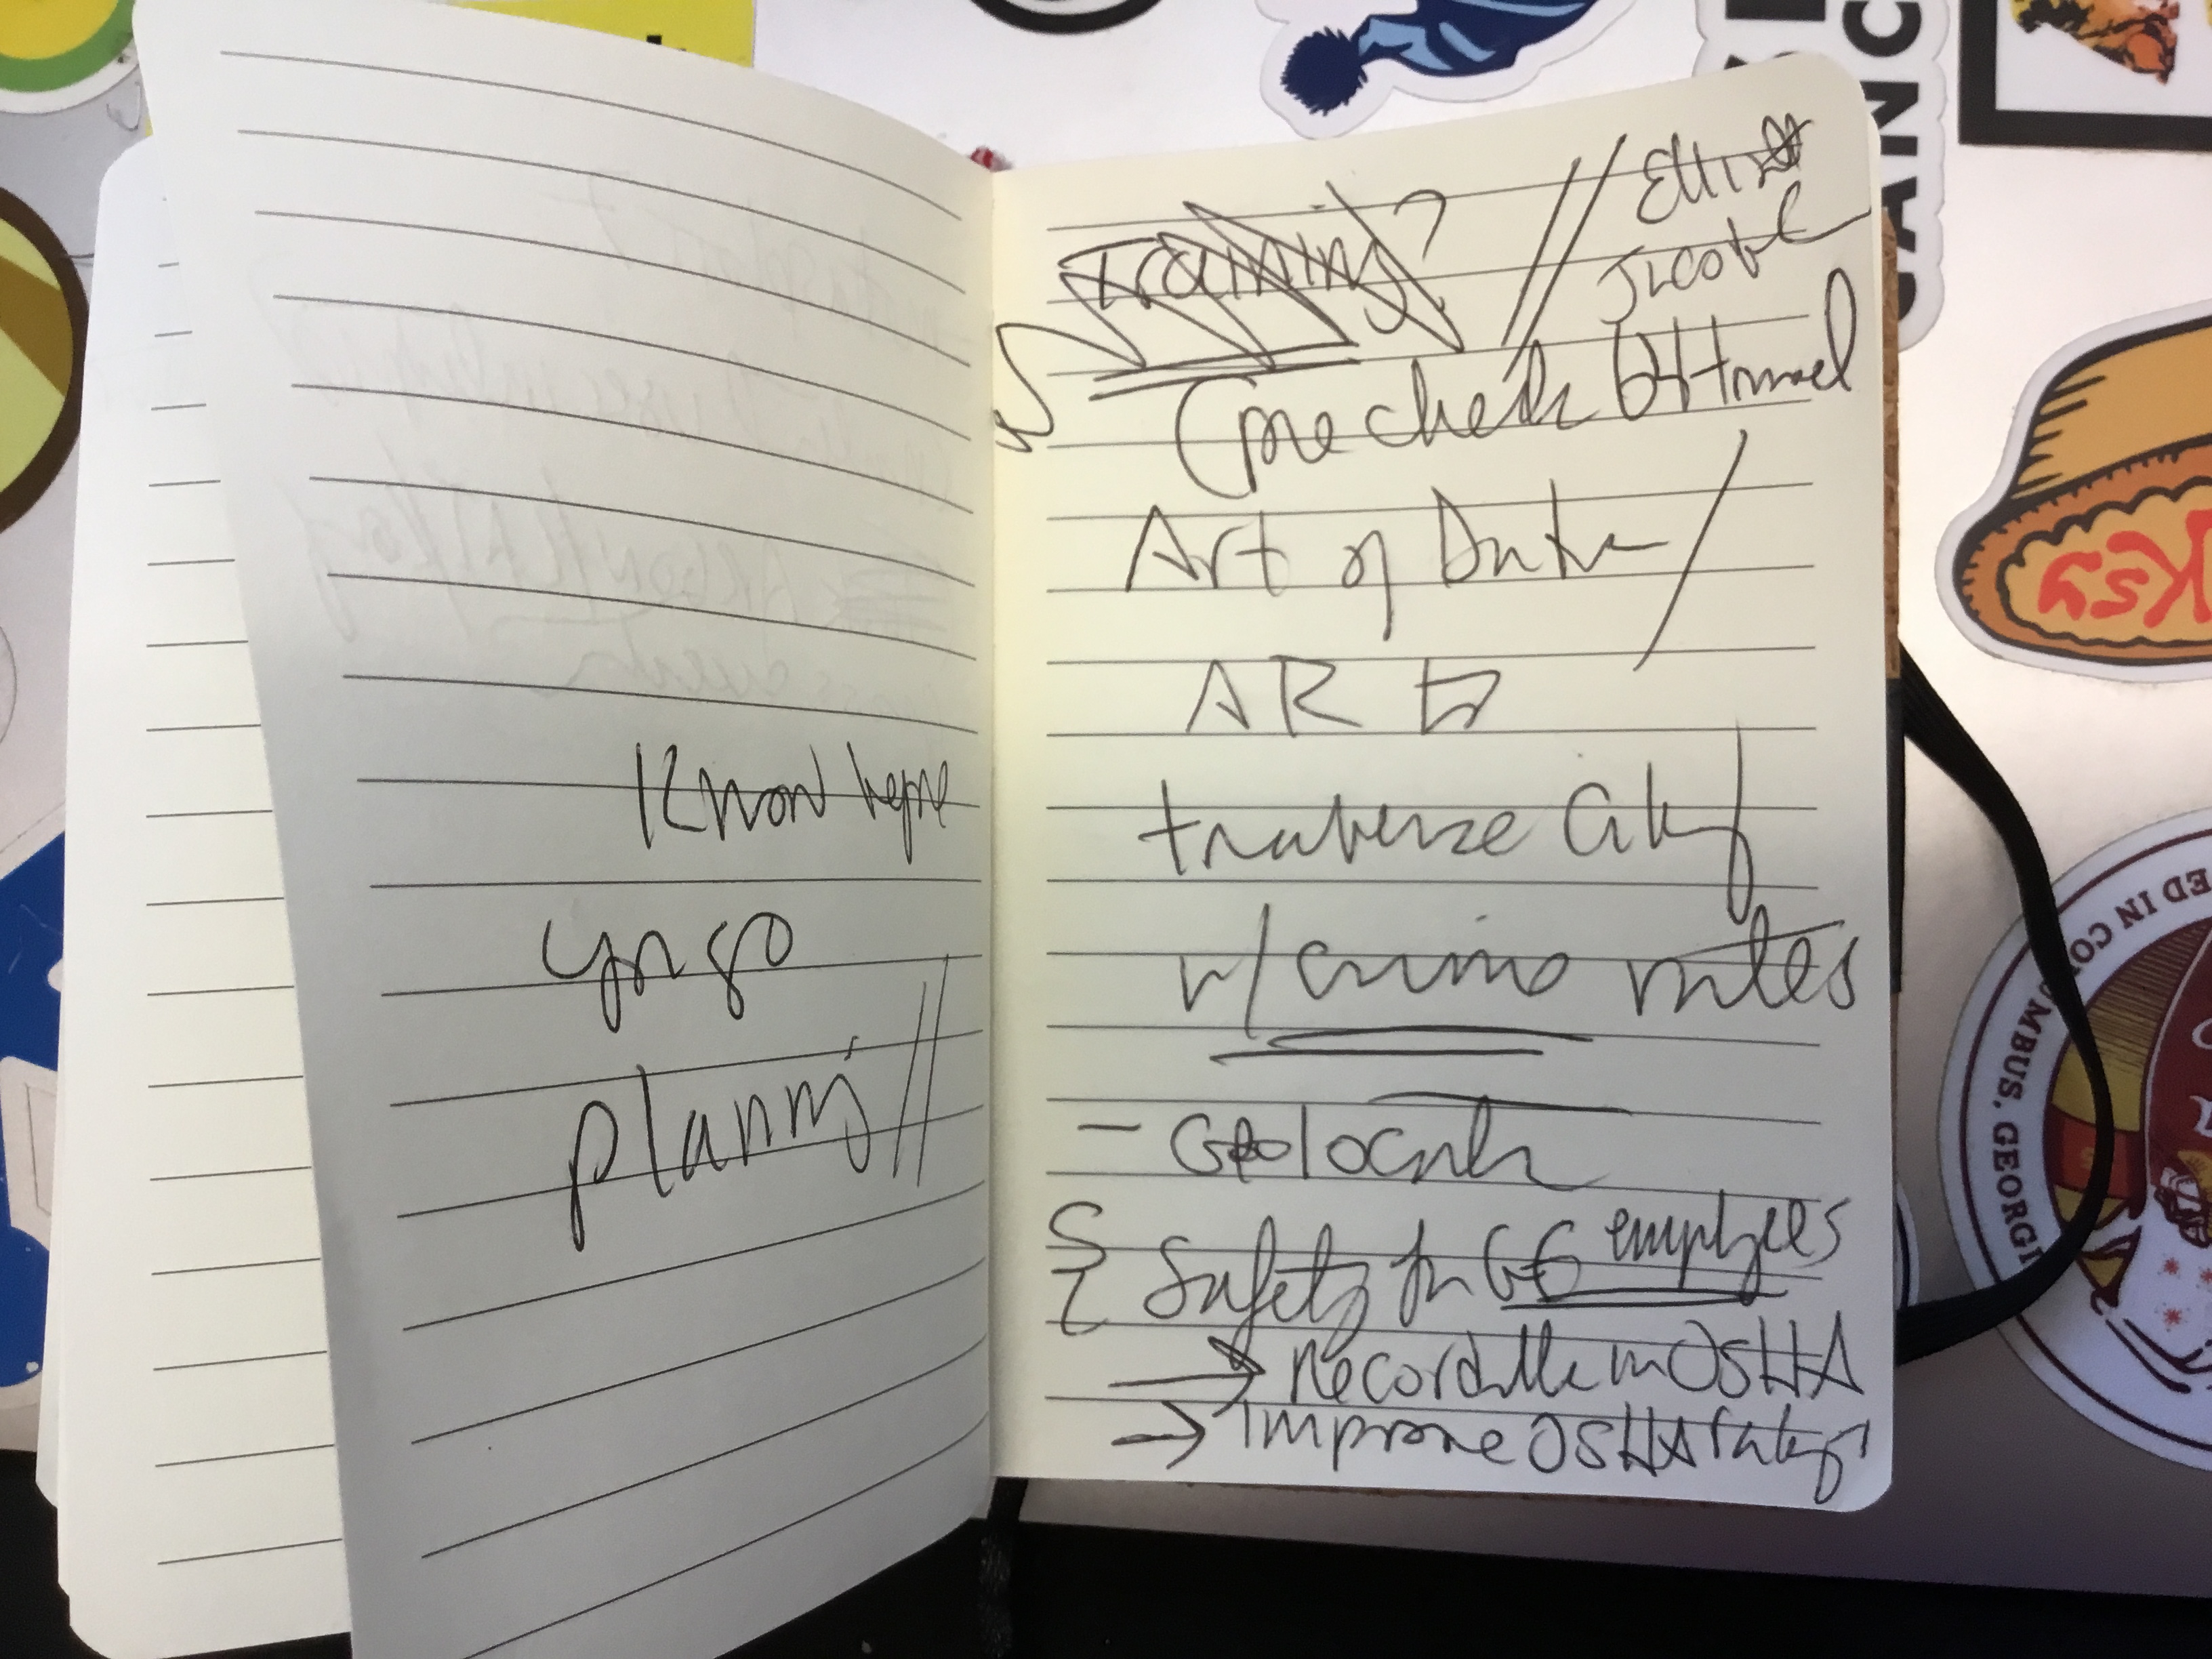 Know before
you go
planning
training?
Elliott
Jacobs
(pre check b4 travel
Art of Data
AR to
traverse City
w/crime rates
- Geolocate
Safety for GE employees
→ Recordable in OSHA
→ Improve OSHA ratings
ED IN COLUMBUS, GEORGI